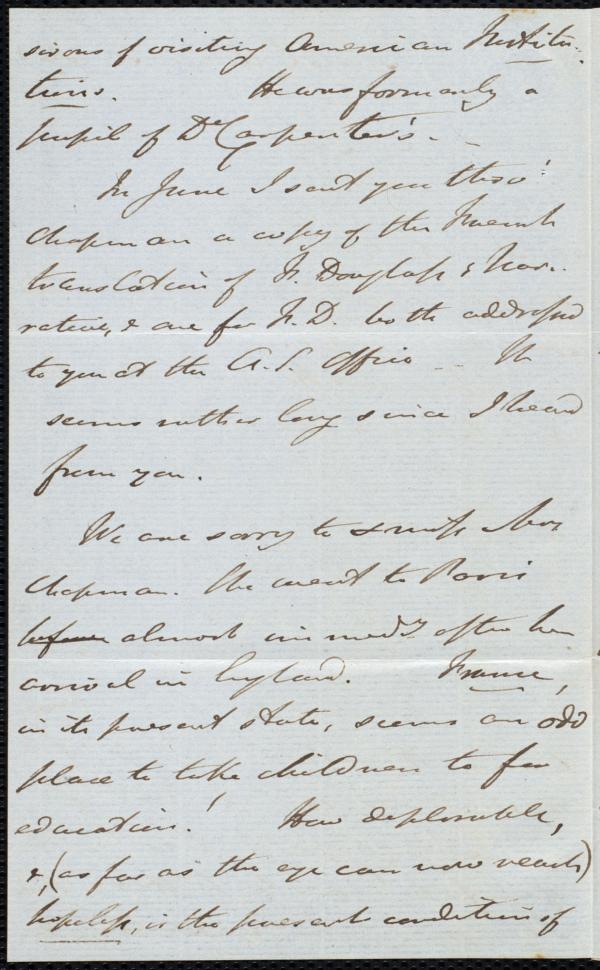 sirous of visiting American Institu-
tions. He was formerly a
pupil of Dr Carpenter's. —
In June I sent you thro'
Chapman a copy of the French
translation of F. Douglass's Nar-
rative, & one for F.D. both addressed
to you at the A.S. Office — It
seems rather long since I heard
from you.
We are sorry to miss Mrs
Chapman. She went to Paris
before almost immedy after her
arrival in England. France,
in its present state, seems an odd
place to take children to for
education! How deplorable,
&, (as far as the eye can now reach)
hopeless, is the present condition of